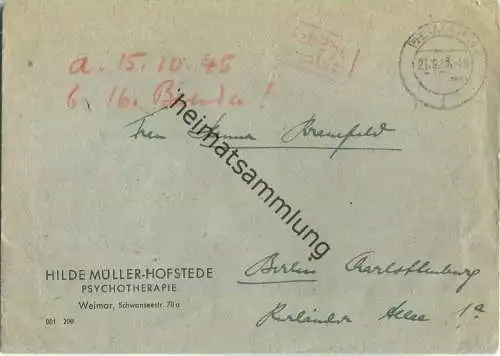 a. 15.10.45
b. 16.
WEIMAR
21.9.45
Frau
heimatsammlung
HILDE MÜLLER-HOFSTEDE
PSYCHOTHERAPIE
Weimar, Schwanseestr. 78a
001 200
Berlin Charlottenburg
Kurländer Allee 1a